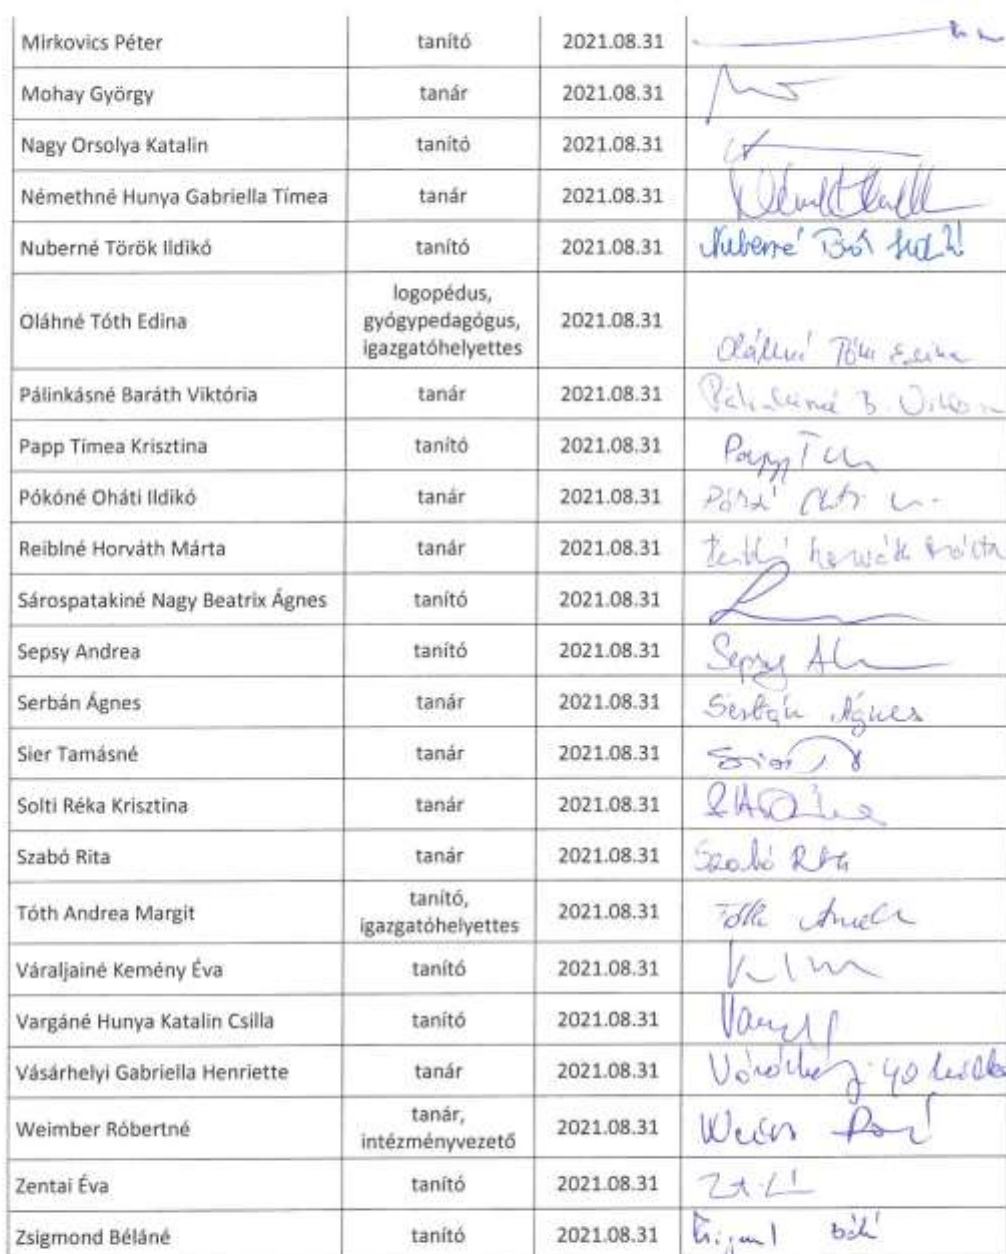 Mirkovics Péter tanító 2021.08.31
Mohay György tanár 2021.08.31
Nagy Orsolya Katalin tanító 2021.08.31
Némethné Hunya Gabriella Tímea tanár 2021.08.31
Nuberné Török Ildikó tanító 2021.08.31 Nuberné
logopédus,
Oláhné Tóth Edina gyógypedagógus, 2021.08.31
igazgatóhelyettes Oláhné Tóth Edina
Pálinkásné Baráth Viktória tanár 2021.08.31 Pálinkásné B.
Papp Tímea Krisztina tanító 2021.08.31 Papp
Pókóné Oháti Ildikó tanár 2021.08.31
Reiblné Horváth Márta tanár 2021.08.31 Horváth Márta
Sárospatakiné Nagy Beatrix Ágnes tanító 2021.08.31
Sepsy Andrea tanító 2021.08.31 Sepsy
Serbán Ágnes tanár 2021.08.31 Serbán Ágnes
Sier Tamásné tanár 2021.08.31
Solti Réka Krisztina tanár 2021.08.31
Szabó Rita tanár 2021.08.31 Szabó Rita
tanító,
Tóth Andrea Margit 2021.08.31 Tóth
igazgatóhelyettes
Váraljainé Kemény Éva tanító 2021.08.31
Vargáné Hunya Katalin Csilla tanító 2021.08.31
Vásárhelyi Gabriella Henriette tanár 2021.08.31
tanár,
Weimber Róbertné 2021.08.31
intézményvezető
Zentai Éva tanító 2021.08.31
Zsigmond Béláné tanító 2021.08.31